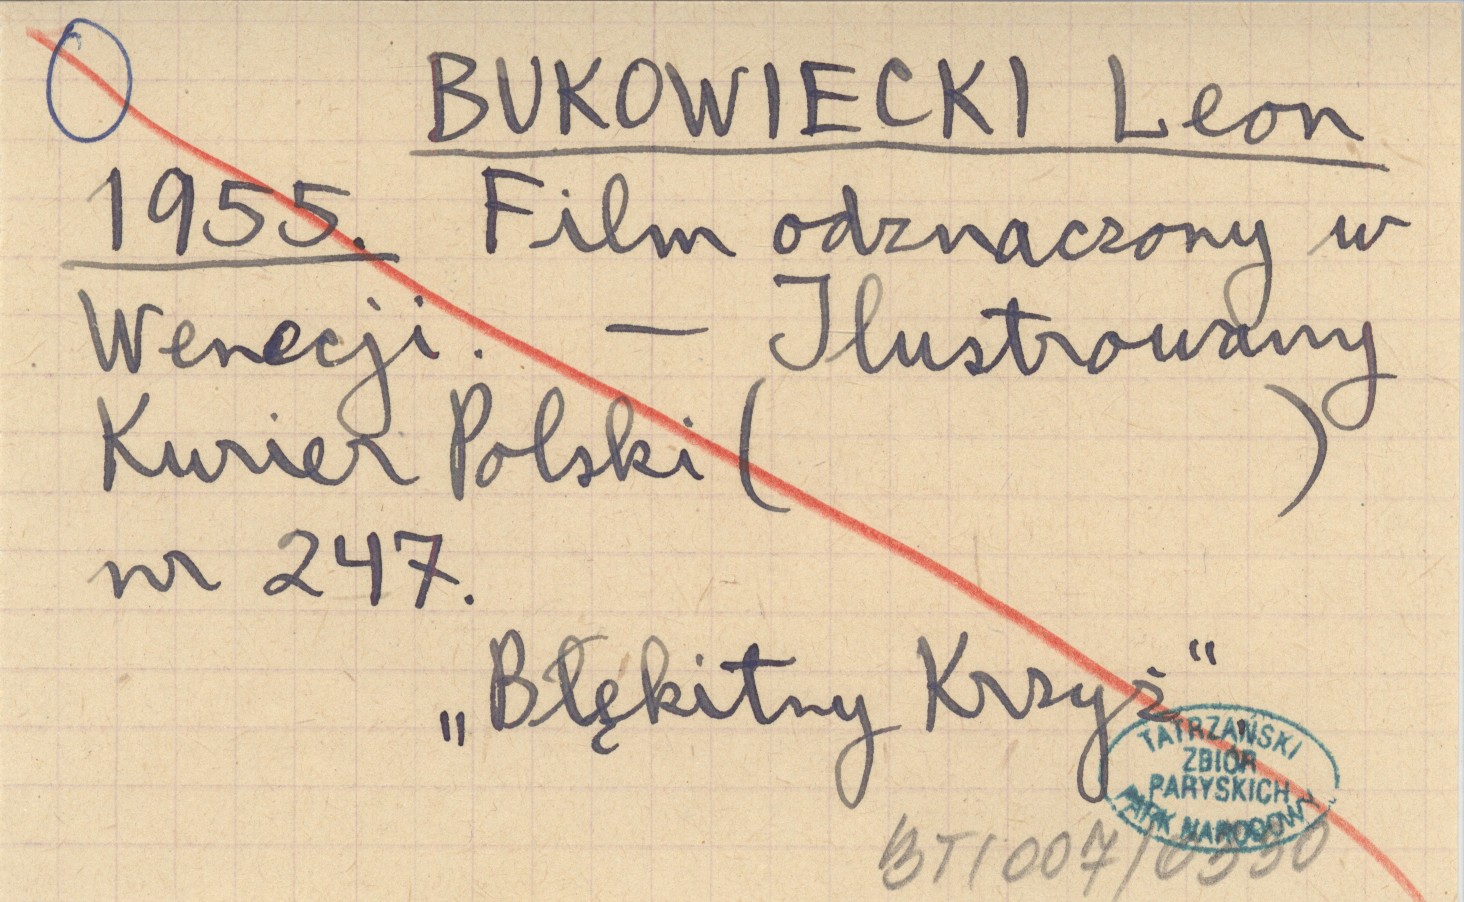 BUKOWIECKI Leon
1955. Film odznaczony w
Wenecji. — Ilustrowany
Kurier Polski (               )
nr 247.
„Błękitny Krzyż“
TATRZAŃSKI
ZBIÓR
PARYSKICH
PARK NARODOWY
BT1007/0330